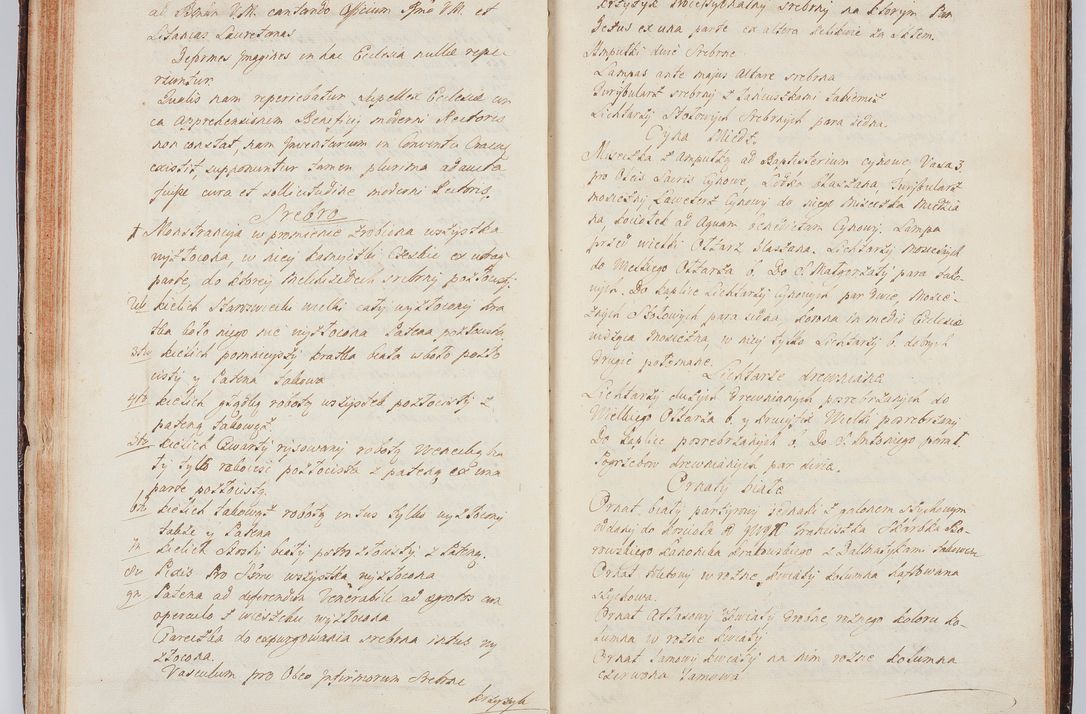 ad Primam V.M. cantando Officium Bmo V.M. et
Litanias Lauretanas
Deformes Imagines in hac Ecclesia nullae repe-
riuntur
Qualis nam reperiebatur Supellex Ecclesiae cir
ca Apprehensionem Beneficij moderni Rectoris
non constat, nam Inventarium in Conventu
existit supponuntur tamen plurima adaucta
fuisse cura et sollicitudine moderni Rectoris
Srebro
1 Monstrancya w promienie zrobiona wszystka
wyzłocona, w niey kamyczki Czeskie ex una
parte, do ktorey Melchizedech srebrny pozłocisty
2do kielich Staroswiecki wielki cały wyzłocony kra
tka koło niego nie wyzłocona Patena pozłocista
3tio kielich pomnieyszy kratka biała wkoło pozło
cisty y Patena takowa
4to kielich gładky roboty wszystek pozłocisty z
pateną takowąż
5to kielich Czwarty rysowany roboty
ty tylko rękoieść pozłocista z pateną ex una
parte pozłocistą
6to kielich takowąż robotą intus tylko wyzłocony
także y Patena
7m kielich prosty biały pstro złocisty z Pateną
8v Puszka Pro Bmo wszystka wyzłocona
9n Patena ad deferendum Venerabile ad aegrotos cum
operculo z wierzchu wyzłocona
Czareczka do expurgowania srebrna intus wy
złocona.
Vasculum pro Oleo Infirmorum Srebrne
krzyżyk
krzyżyk Processyonalny srebrny na ktorym Pan
Jezus ex una parte ex altera
Ampułki dwie Srebrne
Lampas ante majus Altare srebrna
Turybularz srebrny z łańcuszkami takiemisz
Lichtarzy Stołowych Srebrnych para iedna.
Cyna Miedź
Miseczka z Ampułką ad Baptisterium cynowe Vasa 3.
pro Oleis Sacris Cynowe, Łodka blaszana, Turybularz
mosiężny Lawaterz Cynowy do niego Miseczka Miedzia
na, kociołek ad Aquam benedictam Cynowy. Lampa
przed wielki Ołtarz blaszana. Lichtarzy mosiężnych
do Wielkiego Ołtarza 6. Do S. Małgorzaty para tako-
wych. Do kaplice Lichtarzy Cynowych par dwie, Mosię-
żnych Stołowych para iedna, korona in medio Ecclesiae
wisząca Mosiężna, w niey tylko Lichtarzy 6. dobrych
Drugie połamane.
Lichtarze drewniane
Lichtarzy dużych Drewnianych posrebrzanych do
Wielkiego Ołtarza 6. y krucyfix Wielki posrebrzany
Do kaplice posrebrzanych 6. Do S. Antoniego para 1.
Pogrzebow drewnianych par dwie.
Ornaty białe
Ornat biały partyrowy Jednaki z galonem szychowym
oddany do kościoła a Franciszka Skarbka Bo-
rowskiego kanonika krakowskiego z Dalmatykami takiemi
Ornat w rożne kwiaty kolumna haftowana
szychowa.
Ornat Atłasowy kwiaty drobne rożnego koloru ko-
lumna w rożne kwiaty
Ornat Lamowy kwiaty na nim rożne kolumna
czerwona Lamowa